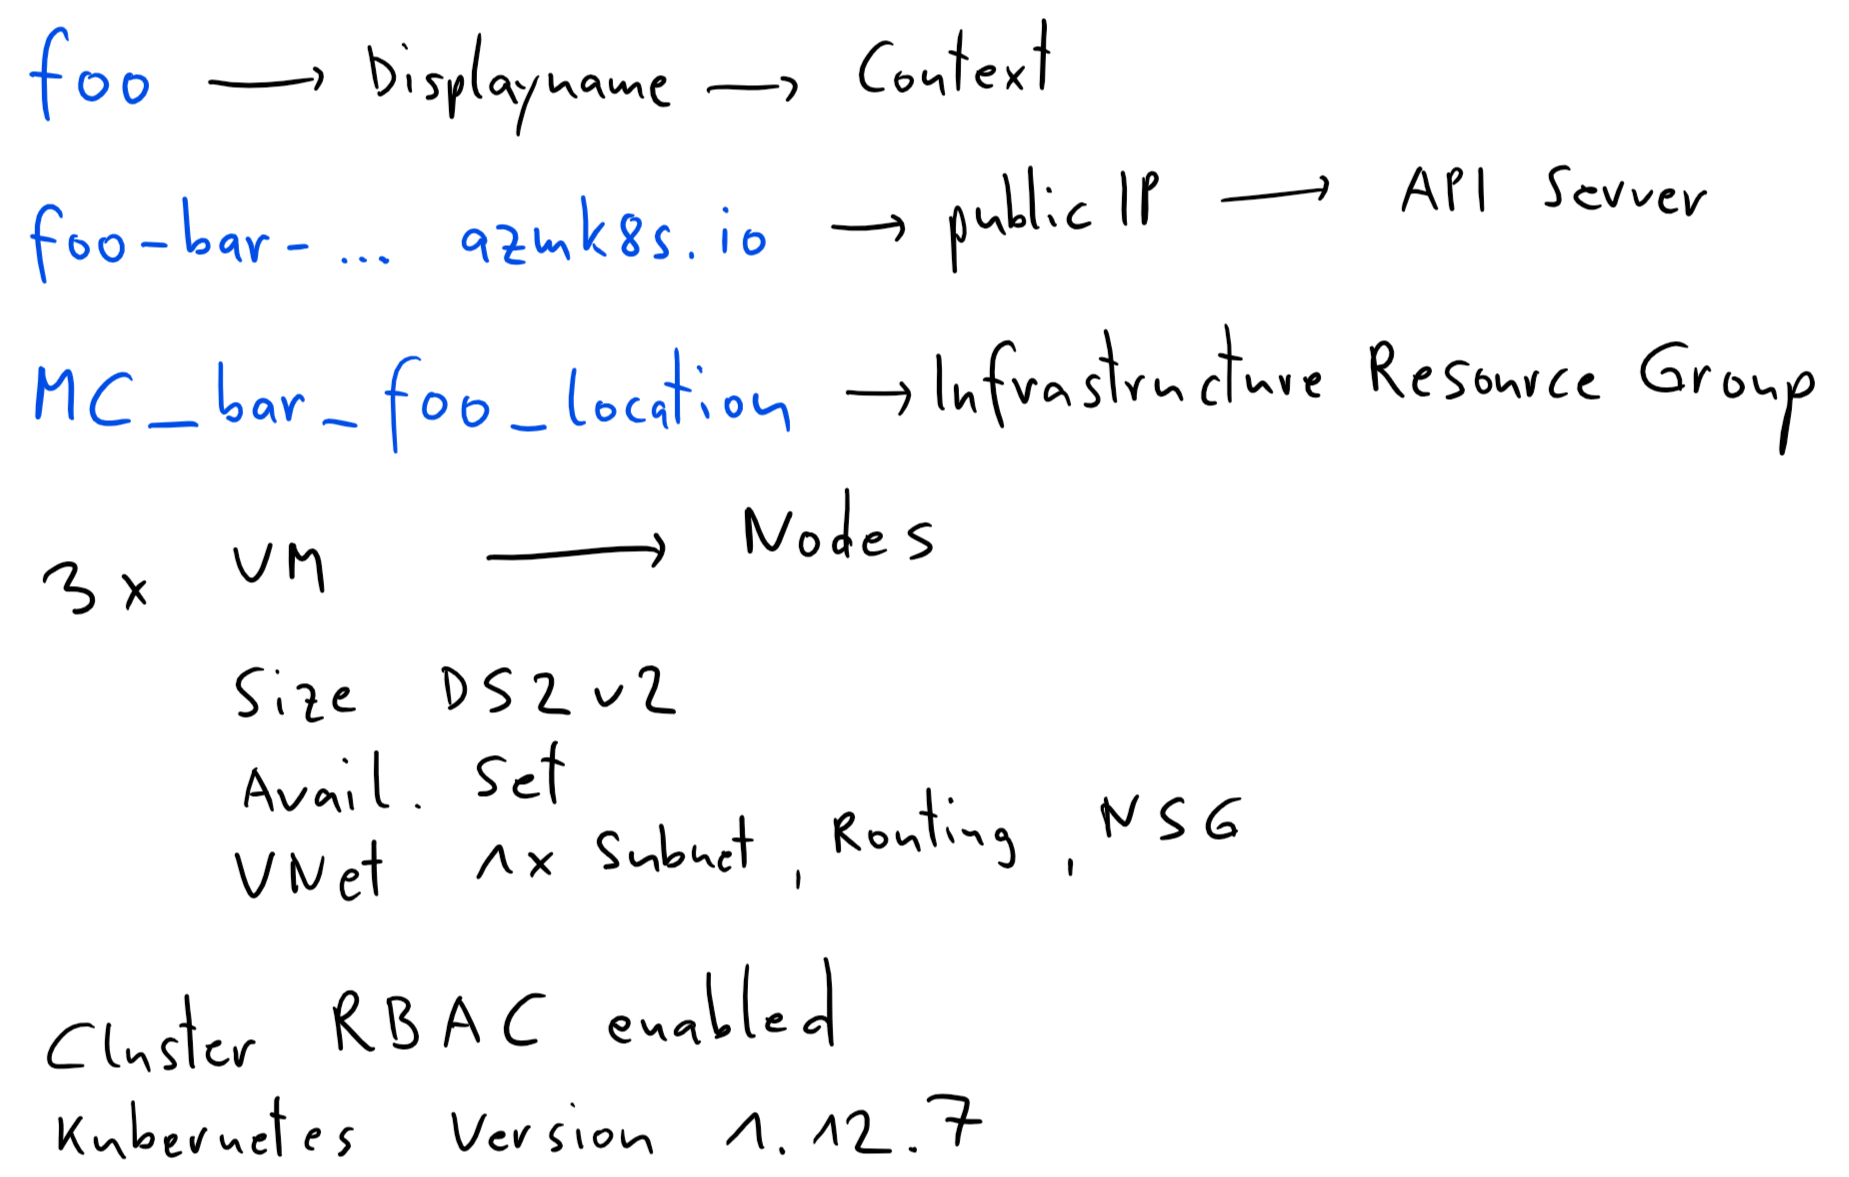 foo → Displayname → Context
foo-bar-... azmk8s.io → public IP → API Server
MC_bar_foo_location → Infrastructure Resource Group
3x VM → Nodes
Size DS2v2
Avail. Set
VNet 1x Subnet, Routing, NSG
Cluster RBAC enabled
Kubernetes Version 1.12.7